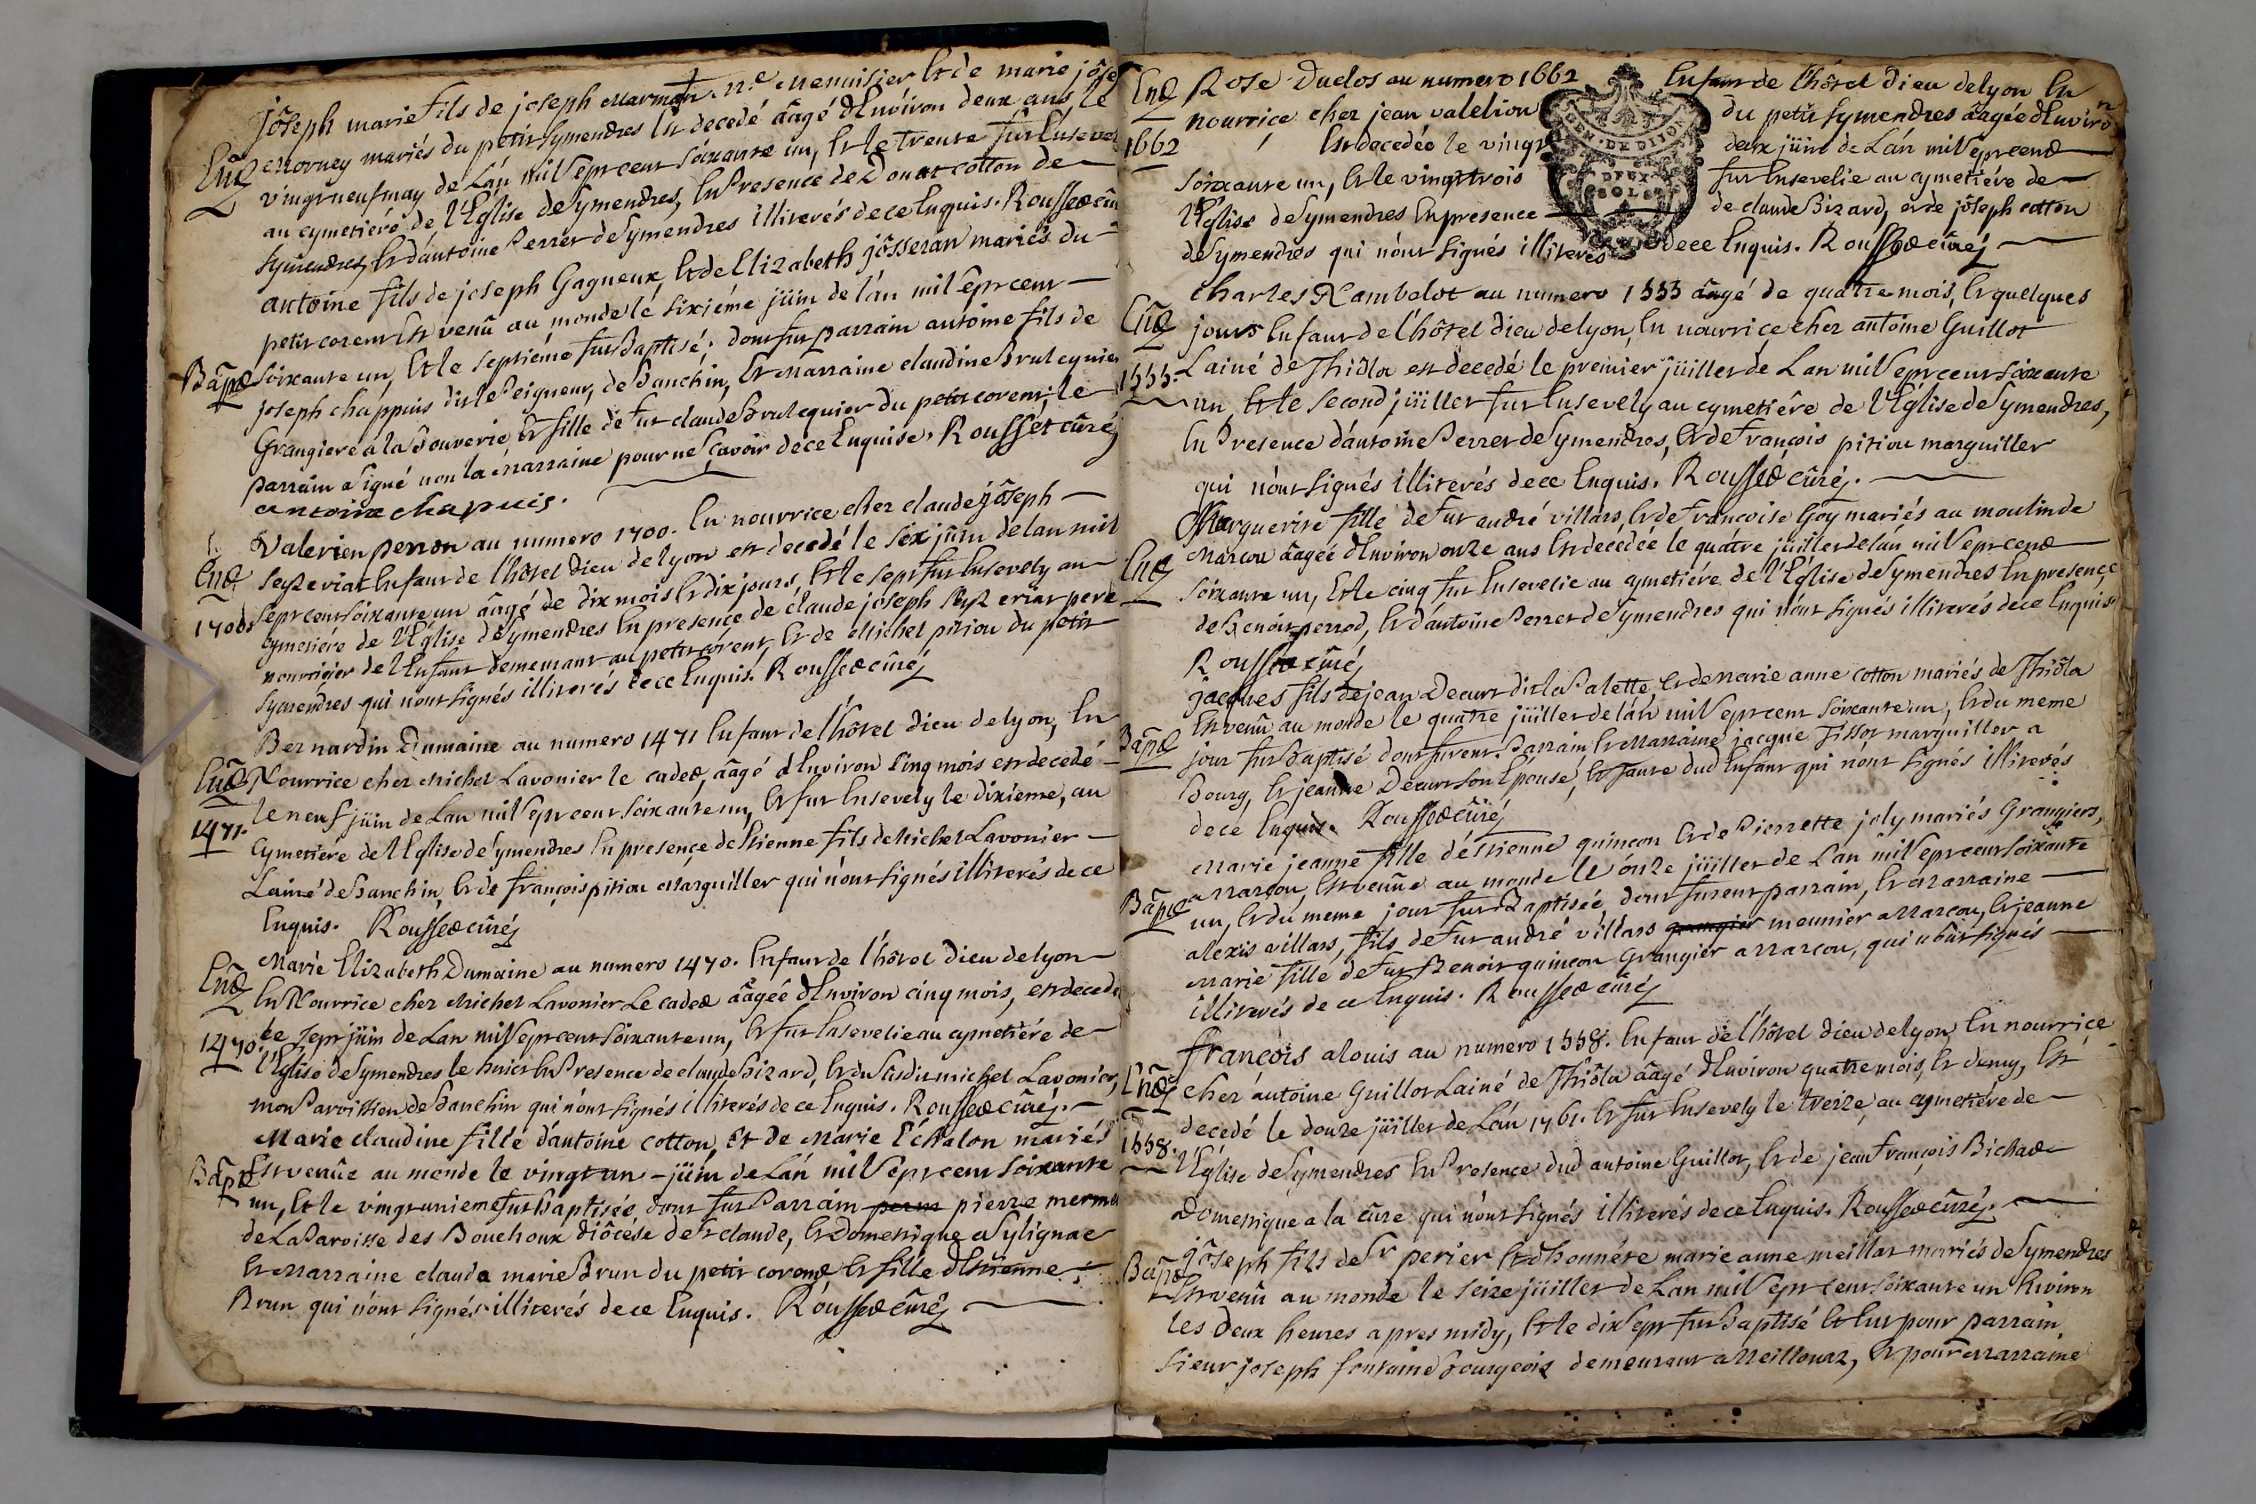 joseph marie fils de joseph marmon Me Menuisier et de marie jose
mornay mariés du petit symendres est decedé âagé d'Environ deux ans, le
Ent
vingt neuf may de L'an mil sept cent soixante un, et le trente fut Ensevel
au cymetiére de l'Eglise de symendres, En Presence de Donat cotton de
symendres, et d'antoine Perret de symendres illiterés de ce Enquis. Rousset cu
antoine fils de joseph Gagneux, et de Elizabeth josseran mariés du
petit corent est venû au monde le sixiéme juin de l'an mil sept cent
Bapt soixante un, et le septiéme fut Baptisé. dont fut parrain antoine fils de
joseph chappuis dit le seigneur, de Banchin, et Marraine claudine Brulequier
Grangiere a la Bouverie et fille de fut claude Brulequier du petit corent; le
parrain a signé non la Marraine pour ne sçavoir de ce Enquise. Rousset cûré
antoine chapuis.
Valerien perron au numero 1700. En nourrice chez claude joseph
Ent
enfant de l'hôtel Dieu de lyon est decedé le six juin de lan mil
1700
sept cent soixante un âagé de dix mois et dix jours, et le sept fut Ensevely au
cymetiére de l'Eglise de symendres En presence de claude joseph pere
nourricier de l'Enfant demeurant au petit corent, et de Michel pitiou du petit
symendres qui n'ont signés illiterés de ce Enquis. Rousset cûré
Bernardin Dumaine au numero 1471 Enfant de l'hôtel Dieu de lyon, En
Ent Nourrice chez Michel Lavonier le cadet, âagé d'Environ cinq mois est decedé
le neuf juin de Lan mil sept cent soixante un, et fut Ensevely le dixieme, au
1471.
Cymetiére de l'Eglise de symendres En presence de Etienne fils de Michel Lavonier
Lainé de Banchin, et de françois pitiou Marguiller qui n'ont signés illiterés de ce
Enquis. Rousset cûré
Marie Elizabeth Dumaine au numero 1470. Enfant de l'hôtel Dieu de lyon
Ent En Nourrice chez Michel Lavonier Le cadet âagée d'Environ cinq mois, est decedé
1470. le sept juin de Lan mil sept cent soixante un, et fut Ensevelie au cymetiére de
l'Eglise de symendres le huict En Presence de claude Bizard, et du susdit michel Lavonier,
mon Paroissien de Banchin qui n'ont signés illiterés de ce Enquis. Rousset cûré.
Marie claudine fille d'antoine cotton, et de Marie L'échalon mariés
Bapt Est venüe au monde le vingt un juin de L'an mil sept cent soixante
un, et le vingt unieme fut Baptisée dont fut Parrain pierre mermet
de La Paroisse des Bouchoux diôcése de St claude, et Domestique a sylignac
et Marraine clauda marie Brun du petit corent et fille d'Etienne
Brun qui n'ont signés illiterés de ce Enquis. Rousset cûré
Ent Rose Duclos au numero 1662 Enfant de l'hôtel Dieu de lyon En
nourrice chez jean valelion du petit symendres âagée d'Environ
1662 Est decedée le vingt deux juin de L'án mil sept cent
soixante un, et le vingt trois fut Ensevelie au cymetiére de
l'Eglise de symendres En presence de claude Bizard, et de joseph cotton
de symendres qui n'ont signés illiterés de ce Enquis. Rousset cûré
GEN. DE DIJON
DEUX SOLS
charles Rambelot au numero 1333 âagé de quatre mois, et quelques
Ent jours Enfant de l'hôtel Dieu de lyon, En nourrice chez antoine Guillot
1333. Lainé de Thiôla est decedé le premier juillet de Lan mil sept cent soixante
un, et le second juillet fut Ensevely au cymetiére de l'Eglise de symendres,
En Presence d'antoine Perret de symendres, et de françois pitiou marguiller
qui n'ont signés illiterés de ce Enquis. Rousset cûré.
Marguerite fille de fut andré villars, et de françoise Goy mariés au moulin de
Ent Marcou âagée d'Environ onze ans Est decedée le quatre juillet de l'an mil sept cent
soixante un, et le cinq fut Ensevelie au cymetiére de l'Eglise de symendres En presence
de Benoit perrod, et d'antoine Perret de symendres qui n'ont signés illiterés de ce Enquis
Rousset cûré
jacques fils de jean Decurt dit la Palette, et de Marie anne cotton mariés de Thiôla
Bapt Est venû au monde le quatre juillet de l'an mil sept cent soixante un, et du meme
jour fut Baptisé dont furent Parrain et Marraine jacque Tissot marguiller a
Bourg, et jeanne Decurt son Epouse, et tante dud Enfant qui n'ont signés illiterés
de ce Enquis. Rousset cûré
Marie jeanne fille d'étienne quincon et de Pierrette joly mariés Grangiers,
a Marcou, Est venüe au monde le ónze juillet de Lan mil sept cent soixante
Bapt un, et du meme jour fut Baptisée dont furent parrain, et Marraine
alexis villars, fils de fut andré villars grangier meunier a Marcou, et jeanne
Marie fille de fut Benoit quincon Grangier a Marcou, qui n'ont signés
illiterés de ce Enquis. Rousset cûré
françois alouis au numero 1338. Enfant de l'hôtel Dieu de lyon, En nourrice
Ent chez antoine Guillot Lainé de Thiôla âagé d'Environ quatre mois, et demy, Est
1338. decedé le douze juillet de L'án 1761. et fut Ensevely le treize au cymetiére de
l'Eglise de symendres En Presence dud antoine Guillot, et de jean françois Bichat
Domestique a la cûre qui n'ont signés illiterés de ce Enquis. Rousset cûré.
joseph fils de Sr perier et d'honnéte marie anne meillat mariés de symendres
Bapt Est venû au monde le seize juillet de Lan mil sept cent soixante un Environ
les deux heures apres midy, et le dix sept fut Baptisé et Eut pour parrain
sieur joseph fontaine Bourgeois demeurant a Meillonaz, et pour Marraine